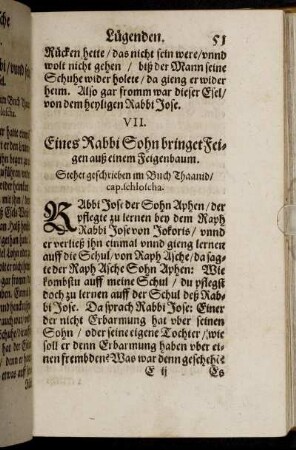 Lügenden. 51
Rücken hette / das nicht sein were / vnnd
wolt nicht gehen / biß der Mann seine
Schuhe wider holete / da gieng er wider
heim. Also gar fromm war dieser Esel /
von dem heyligen Rabbi Jose.
VII.
Eines Rabbi Sohn bringet Fei-
gen auß einem Feigenbaum.
Stehet geschrieben im Buch Thaanid /
cap. schloscha.
RAbbi Jose der Sohn Aphen / der
pflegte zu lernen bey dem Raph
Rabbi Jose von Jokoris / vnnd
er verließ ihn einmal vnnd gieng lernen
auff die Schul / von Raph Asche / da sag-
te der Raph Asche Sohn Aphen: Wie
kombstu auff meine Schul / du pflegst
doch zu lernen auff der Schul deß Rab-
bi Jose. Da sprach Rabbi Jose: Einer
der nicht Erbarmung hat vber seinen
Sohn / oder seine eigene Tochter / wie
soll er denn Erbarmung haben vber ei-
nen frembden? Was war denn geschehē?
E ij Es